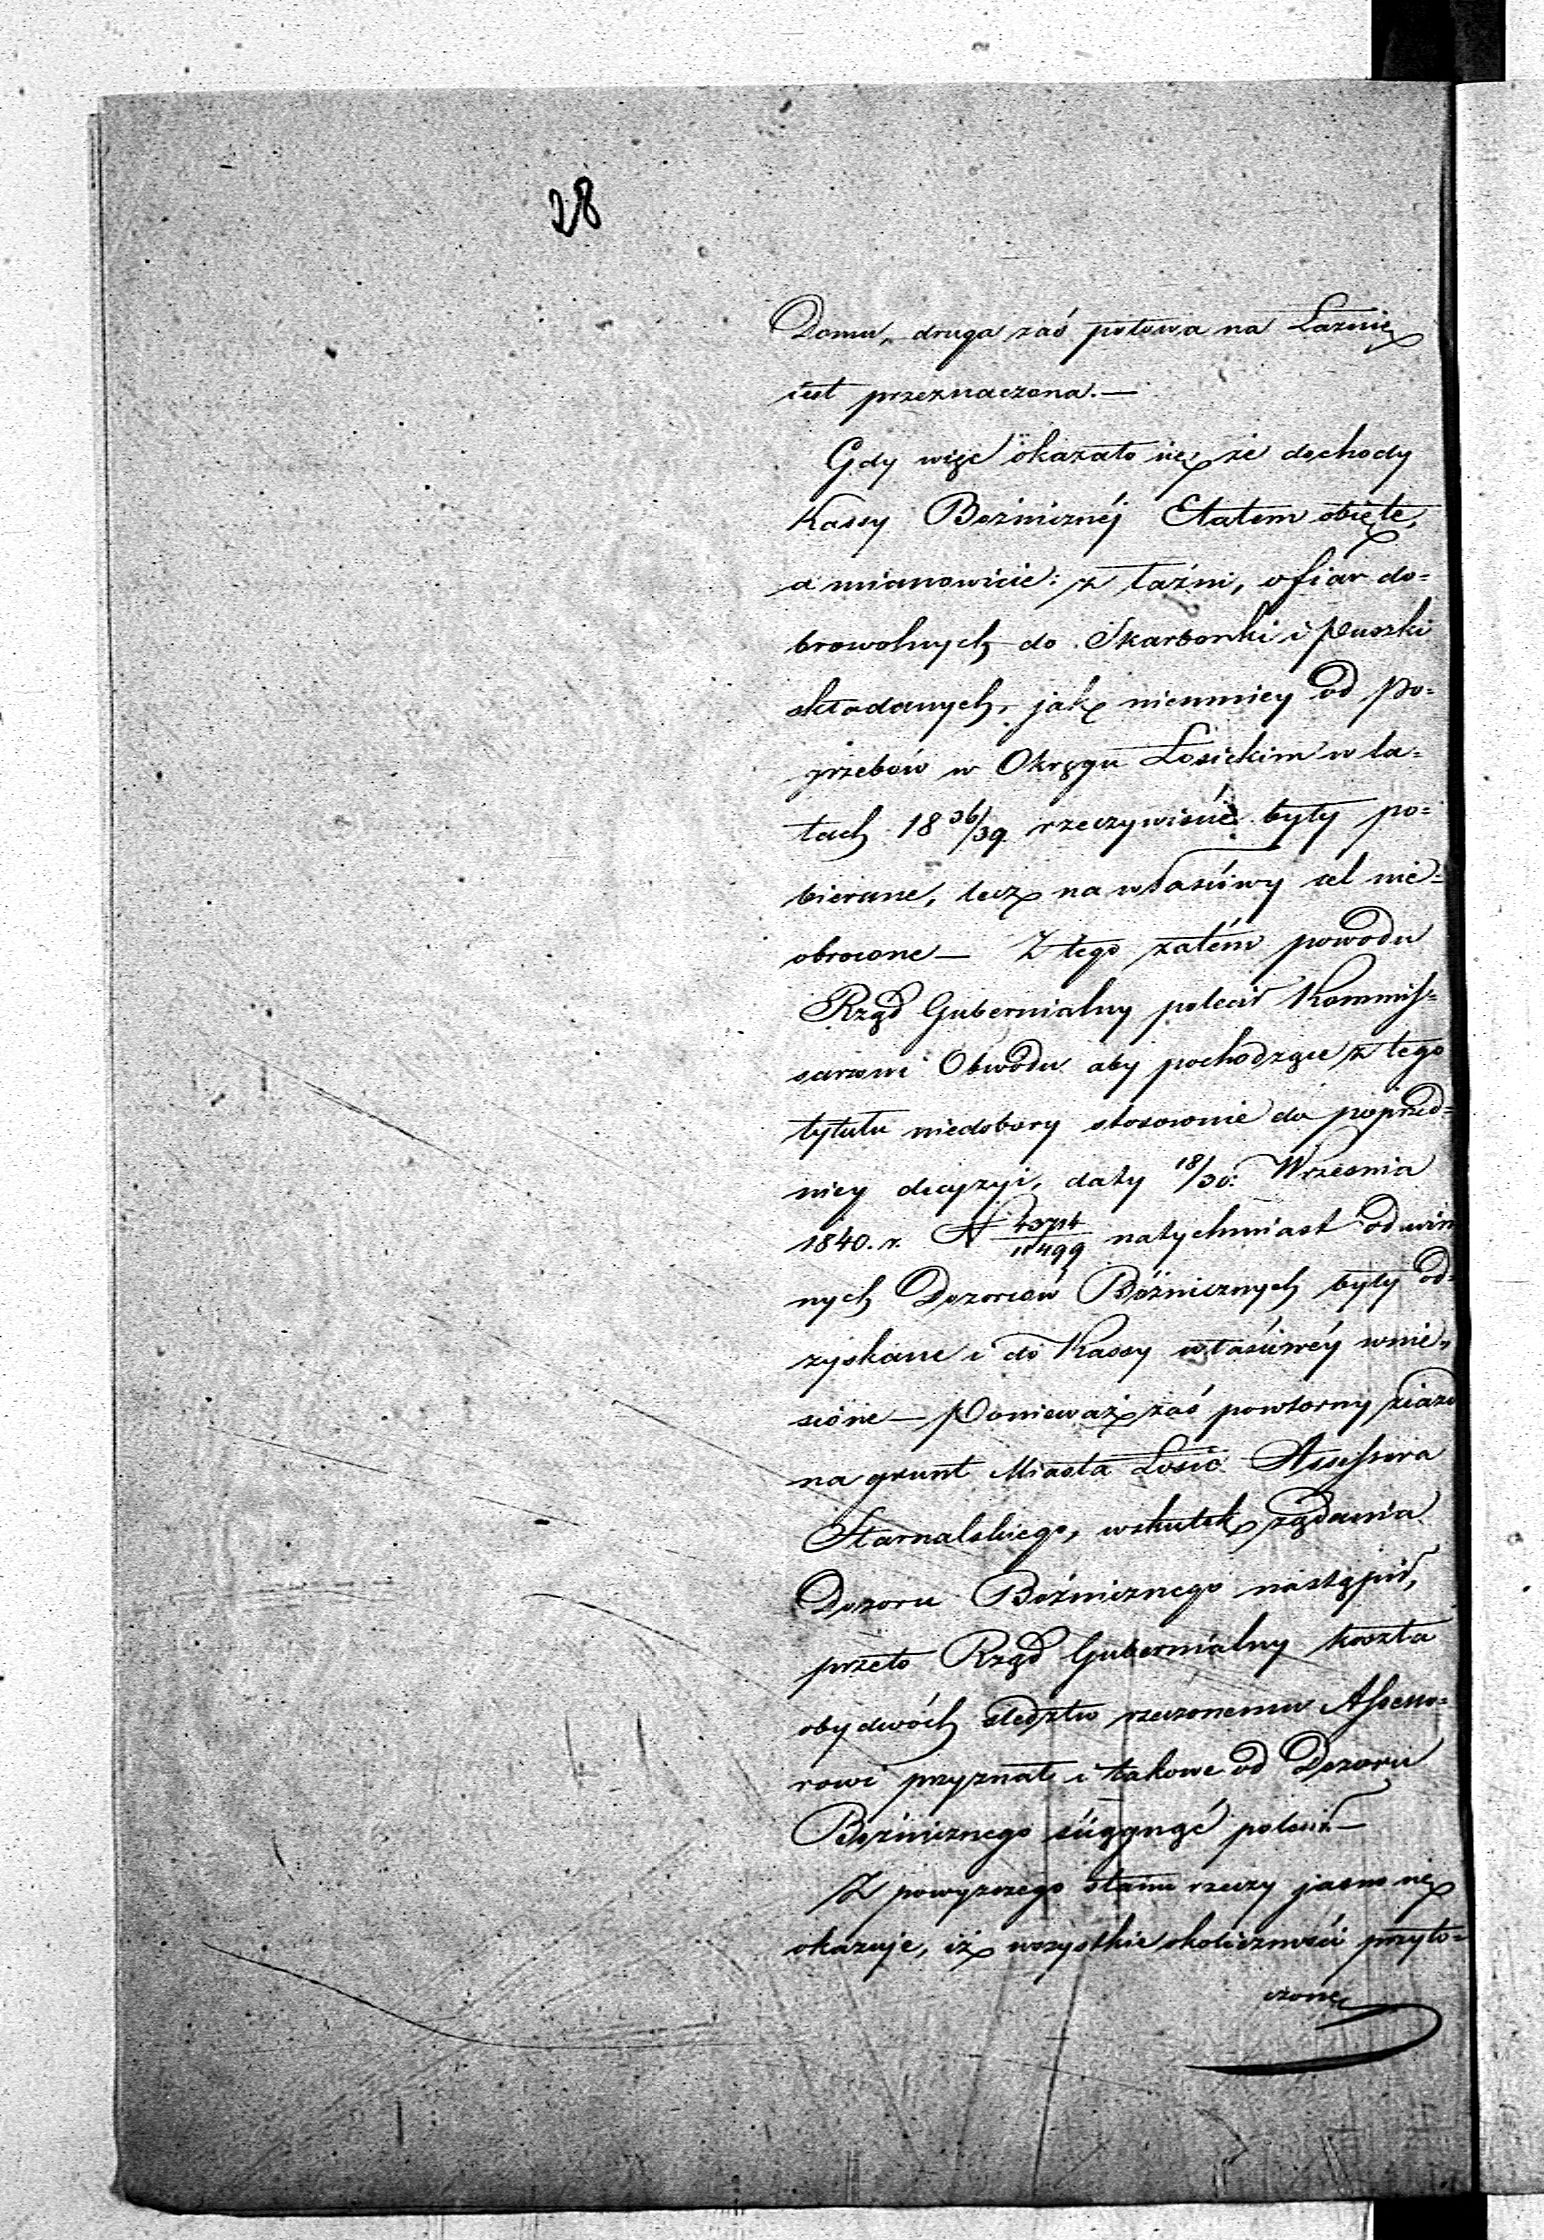 28
Domu, druga zaś połowa na Łaznię
iest przeznaczona. —
Gdy więc okazało się, że dochody
Kassy Bożniczney Etatem obięte,
a mianowicie: z łaźni, ofiar do=
browolnych do Skarbonki i Puszki
składanych, jak niemniey od po=
grzebów w Okręgu Łosickim w la=
tach 18 36/39 rzeczywiście były po=
bierane, lecz na właściwy cel nie=
obrocone — Z tego zatém powodu
Rząd Gubernialny polecił Kommis=
sarzowi Obwodu aby pochodzące z tego
tytułu niedobory stosownie do poprzed=
niey decyzyi, daty 18/30. Września
1840. r. N natychmiast od win
nych Dozorców Bóżnicznych były od=
zyskane i do Kassy właściwéy wnie=
sione — Ponieważ zaś powtorny ziazd
na grunt Miasta Łosic Assessora
Starnalskiego, wskutek żądania
Dozoru Bożnicznego nastąpił,
przeto Rząd Gubernialny koszta
obydwóch śledztw rzeczonemu Assesso=
rowi przyznał i takowe od Dozoru
Bożnicznego ściągnąć polecił —
Z powyższego stanu rzeczy jasno się
okazuje, iż wszystkie okoliczności przyto=
czone